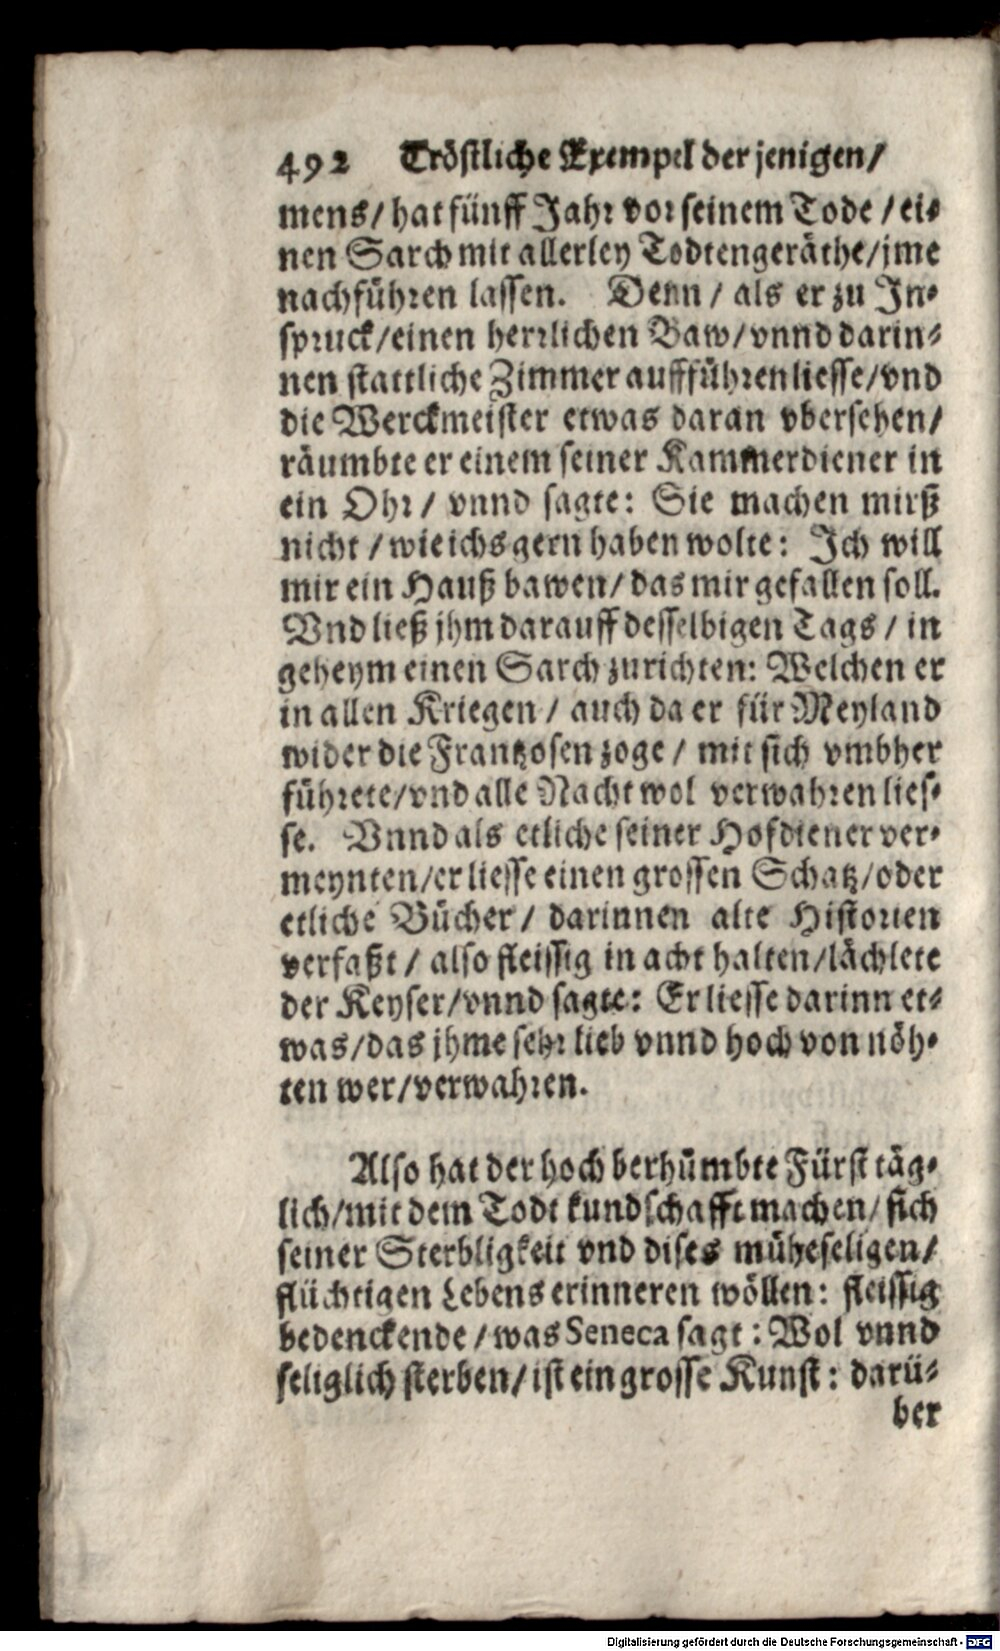 492 Tröstliche Exempel der jenigen/
mens/ hat fünff Jahr vor seinem Tode / ei-
nen Sarch mit allerley Todtengeräthe/jme
nachführen lassen. Denn / als er zu In-
spruck/einen herrlichen Baw/vnnd darin-
nen stattliche Zimmer auffführen liesse/vnd
die Werckmeister etwas daran vbersehen/
räumbte er einem seiner Kammerdiener in
ein Ohr / vnnd sagte: Sie machen mirß
nicht / wie ichs gern haben wolte: Ich will
mir ein Hauß bawen/ das mir gefallen soll.
Vnd ließ jhm darauff desselbigen Tags / in
geheym einen Sarch zurichten: Welchen er
in allen Kriegen / auch da er für Meyland
wider die Frantzosen zoge / mit sich vmbher
führete/vnd alle Nacht wol verwahren lies-
se. Vnnd als etliche seiner Hofdiener ver-
meynten/er liesse einen grossen Schatz/oder
etliche Bücher / darinnen alte Historien
verfaßt / also fleissig in acht halten/lächlete
der Keyser/vnnd sagte: Er liesse darinn et-
was/das jhme sehr lieb vnnd hoch von nöh-
ten wer/verwahren.
Also hat der hoch berhümbte Fürst täg-
lich/mit dem Todt kundschafft machen/ sich
seiner Sterbligkeit vnd dises müheseligen/
flüchtigen Lebens erinneren wöllen: fleissig
bedenckende / was Seneca sagt : Wol vnnd
seliglich sterben/ ist ein grosse Kunst : darü-
ber
Digitalisierung gefördert durch die Deutsche Forschungsgemeinschaft - DFG